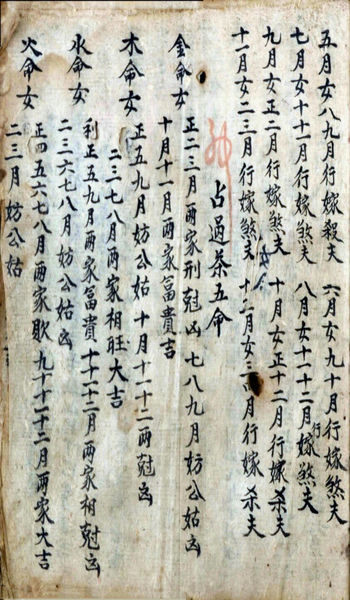 五月女八九月行嫁殺夫 六月女九十月行嫁煞夫
七月女十十一月行嫁煞夫 八月女十一十二月行嫁煞夫
九月女正二月行嫁煞夫 十月女正十二月行嫁杀夫
十一月女二三月行嫁煞夫 十二月女三月行嫁杀夫
占過茶五命
金命女 正二三月兩家刑尅凶 七八九月妨公姑凶
十月十一月兩家富貴吉
木命女 正五九月妨公姑 十月十一十二兩尅凶
二三七八月兩家相旺大吉
水命女 利正五九月兩家富貴 十十一十二月兩家相尅凶
二三六七八月妨公姑凶
火命女 正四五六七八月兩家敗 九十十一十二月兩家大吉
二三月妨公姑